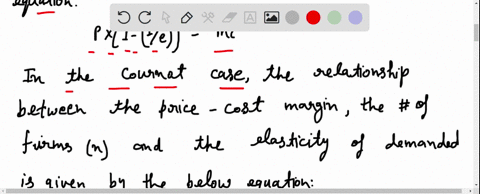 equation.
P x [1 - (1/e)] = mc
In the Cournat case, the relationship
between the price - cost margin, the # of
firms (n) and the elasticity of demanded
is given by the below equation: